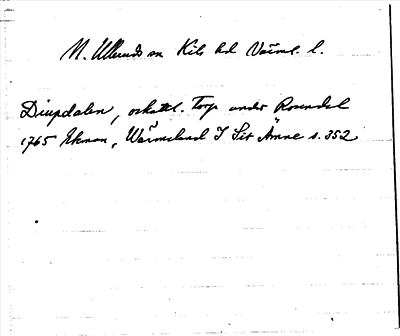 N. Ulleruds sn Kils hd Värml. l.
Diupdalen, oskattl. Torp under Rosendal
1765 Ekman, Wärmeland I Sit Ämne s. 352